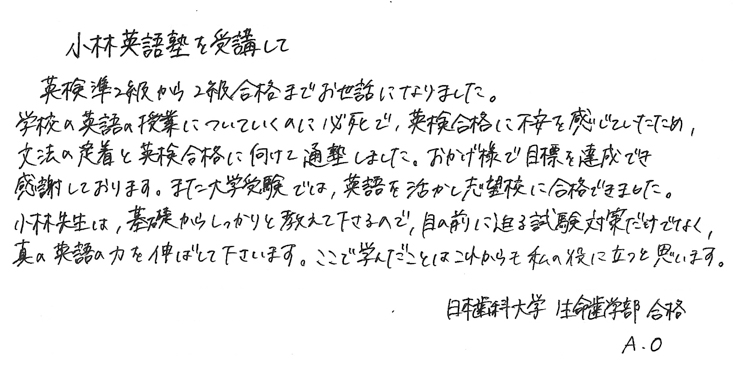 小林英語塾を受講して
英検準2級から2級合格までお世話になりました。
学校の英語の授業についていくのに必死で,英検合格に不安を感じていたため,
文法の定着と英検合格に向けて通塾しました。おかげ様で目標を達成でき
感謝しております。また大学受験では,英語を活かし志望校に合格できました。
小林先生は,基礎からしっかりと教えて下さるので,目の前に迫る試験対策だけでなく,
真の英語の力を伸ばして下さいます。ここで学んだことはこれからも私の役に立つと思います。
日本歯科大学 生命歯学部 合格
A.O